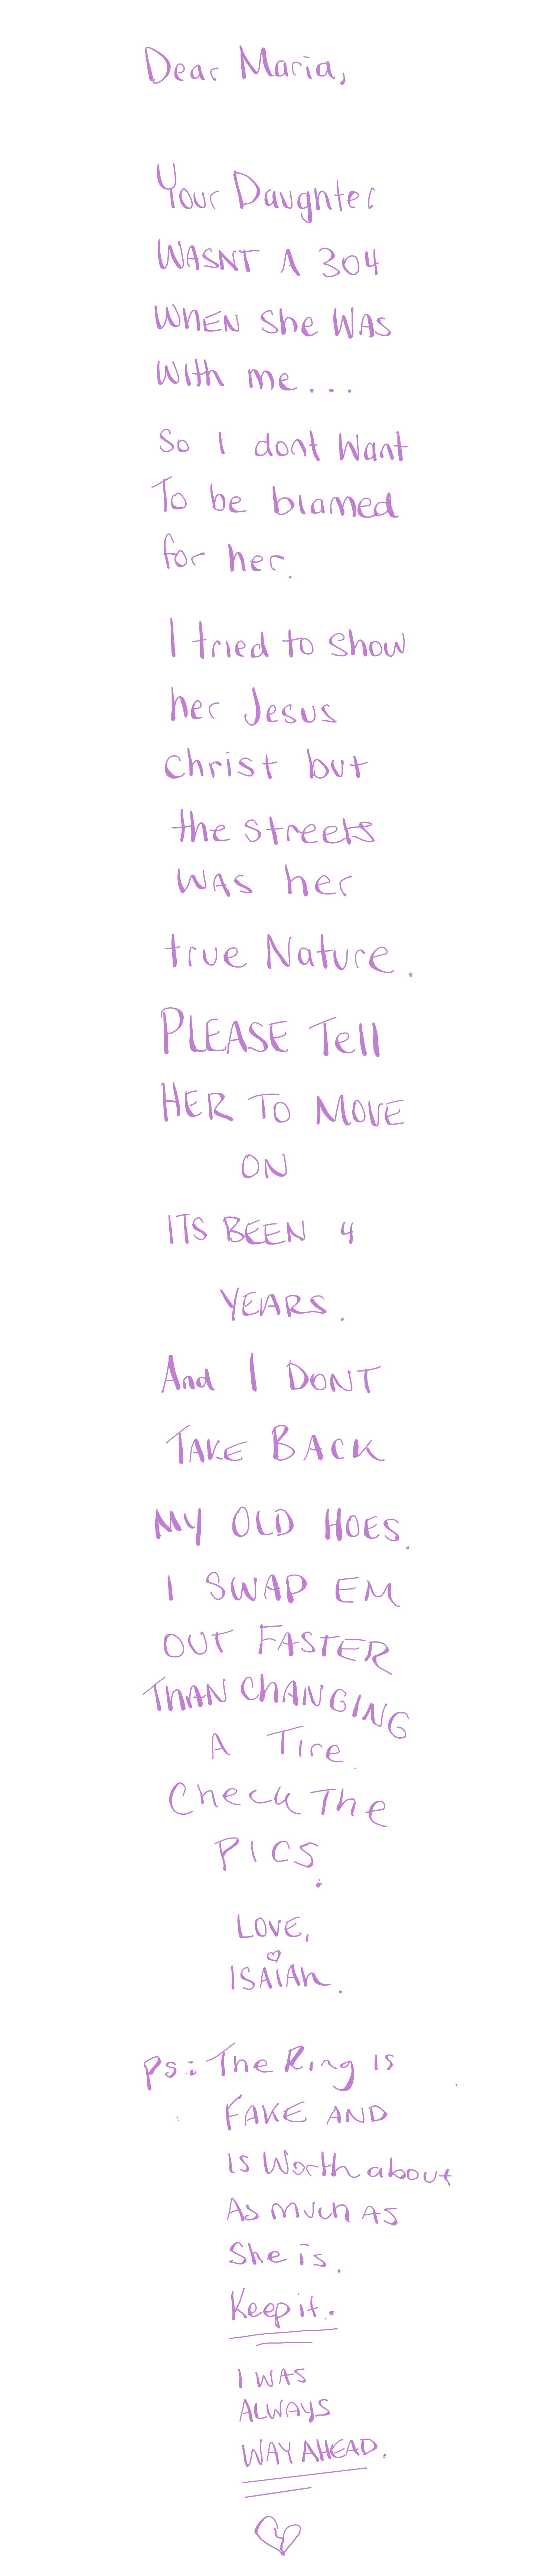 Dear Maria,
Your Daughter
WASNT A 304
WhEN She WAS
With me...
So I dont Want
To be blamed
for her.
I tried to show
her Jesus
christ but
the streets
WAS her
true Nature.
PLEASE Tell
HER TO MOVE
ON
ITS BEEN 4
YEARS.
And I DONT
TAKE BACK
MY OLD HOES.
I SWAP EM
OUT FASTER
ThAN ChANGING
A Tire.
Check The
PICS.
LOVE,
ISAIAh.
Ps: The Ring is
FAKE AND
Is Worth about
As much AS
She is.
Keep it.
I WAS
ALWAYS
WAY AHEAD.